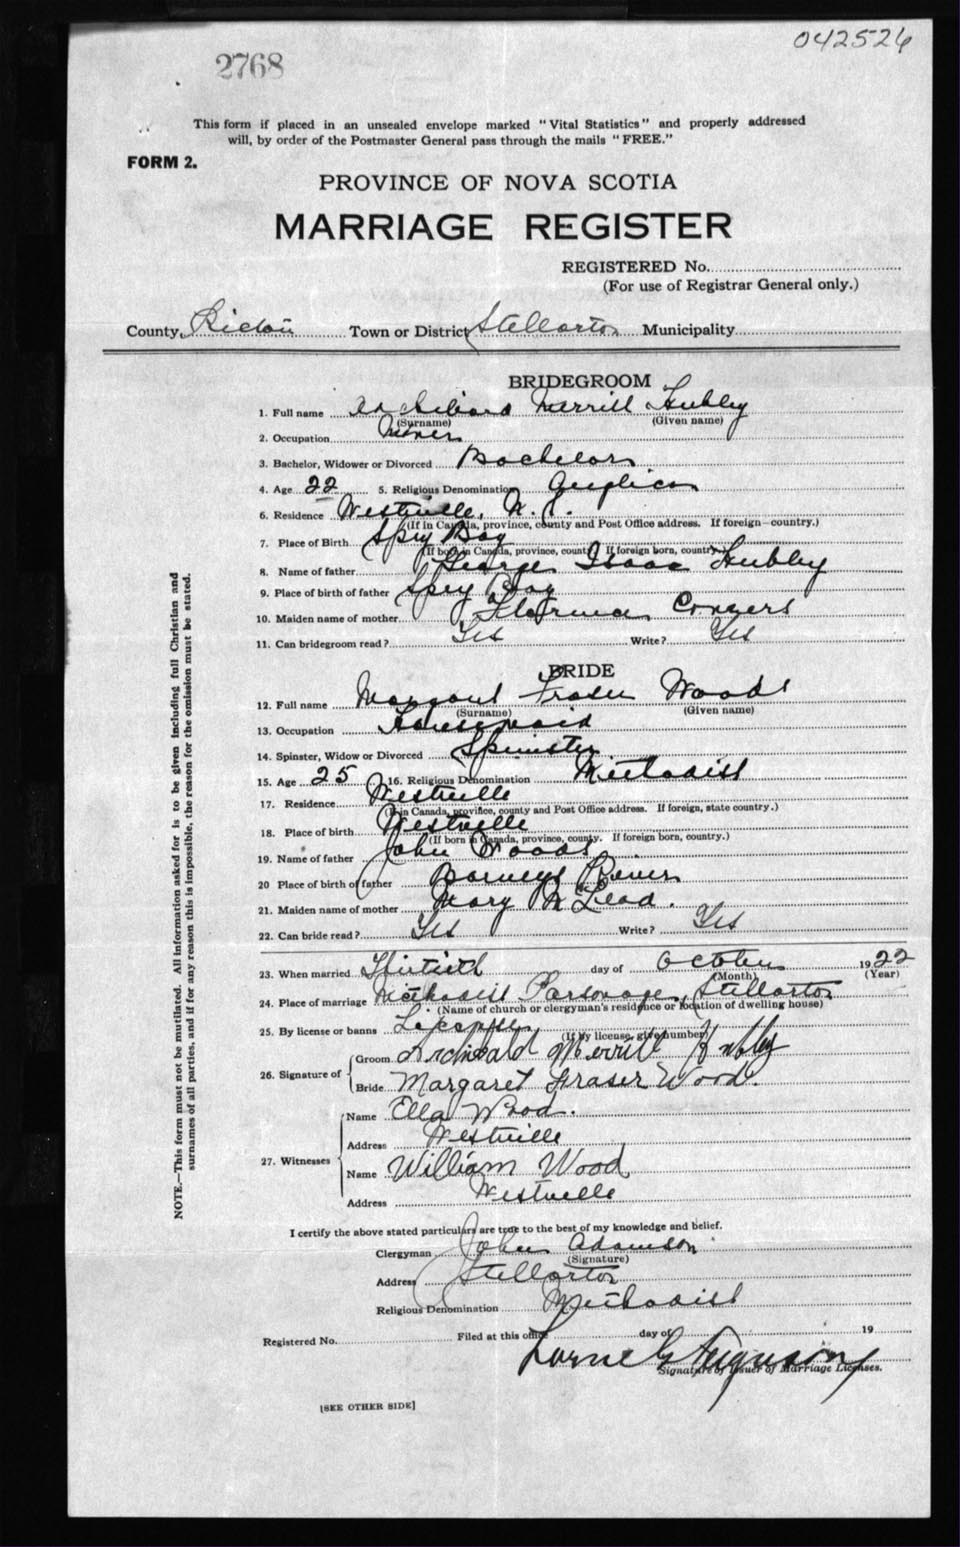 042526
2768
This form if placed in an unsealed envelope marked "Vital Statistics" and properly addressed
will, by order of the Postmaster General pass through the mails "FREE."
FORM 2.
PROVINCE OF NOVA SCOTIA
MARRIAGE REGISTER
REGISTERED No.
(For use of Registrar General only.)
County Pictou Town or District Stellarton Municipality
BRIDEGROOM
1. Full name Archibald Merrill Hubley
(Surname) (Given name)
2. Occupation Miner
3. Bachelor, Widower or Divorced Bachelor
4. Age 22 5. Religious Denomination Anglican
6. Residence Westville, N. S.
(If in Canada, province, county and Post Office address. If foreign—country.)
7. Place of Birth Spry Bay
(If born in Canada, province, county. If foreign born, country.)
8. Name of father George Isaac Hubley
9. Place of birth of father Spry Bay
10. Maiden name of mother Conyers
11. Can bridegroom read? Yes Write? Yes
BRIDE
12. Full name Margaret Fraser Wood
(Surname) (Given name)
13. Occupation Housemaid
14. Spinster, Widow or Divorced Spinster
15. Age 25 16. Religious Denomination Methodist
17. Residence Westville
(If in Canada, province, county and Post Office address. If foreign, state country.)
18. Place of birth Westville
(If born in Canada, province, county. If foreign born, country.)
19. Name of father John Woods
20 Place of birth of father Barneys River
21. Maiden name of mother Mary McLeod.
22. Can bride read? Yes Write? Yes
23. When married Thirtieth day of October 1922
(Month) (Year)
24. Place of marriage Methodist Parsonage, Stellarton
(Name of church or clergyman's residence or location of dwelling house)
25. By license or banns
(If by license, give number)
26. Signature of
Groom Archibald Merrill Hubley
Bride Margaret Fraser Wood.
27. Witnesses
Name Ella Wood.
Address Westville
Name William Wood
Address Westville
I certify the above stated particulars are true to the best of my knowledge and belief.
Clergyman John Adamson
(Signature)
Address Stellarton
Religious Denomination Methodist
Registered No. Filed at this office day of 19
Lorne G Ferguson
Signature of Issuer of Marriage Licenses.
[SEE OTHER SIDE]
NOTE.—This form must not be mutilated. All information asked for is to be given including full Christian and
surnames of all parties, and if for any reason this is impossible, the reason for the omission must be stated.